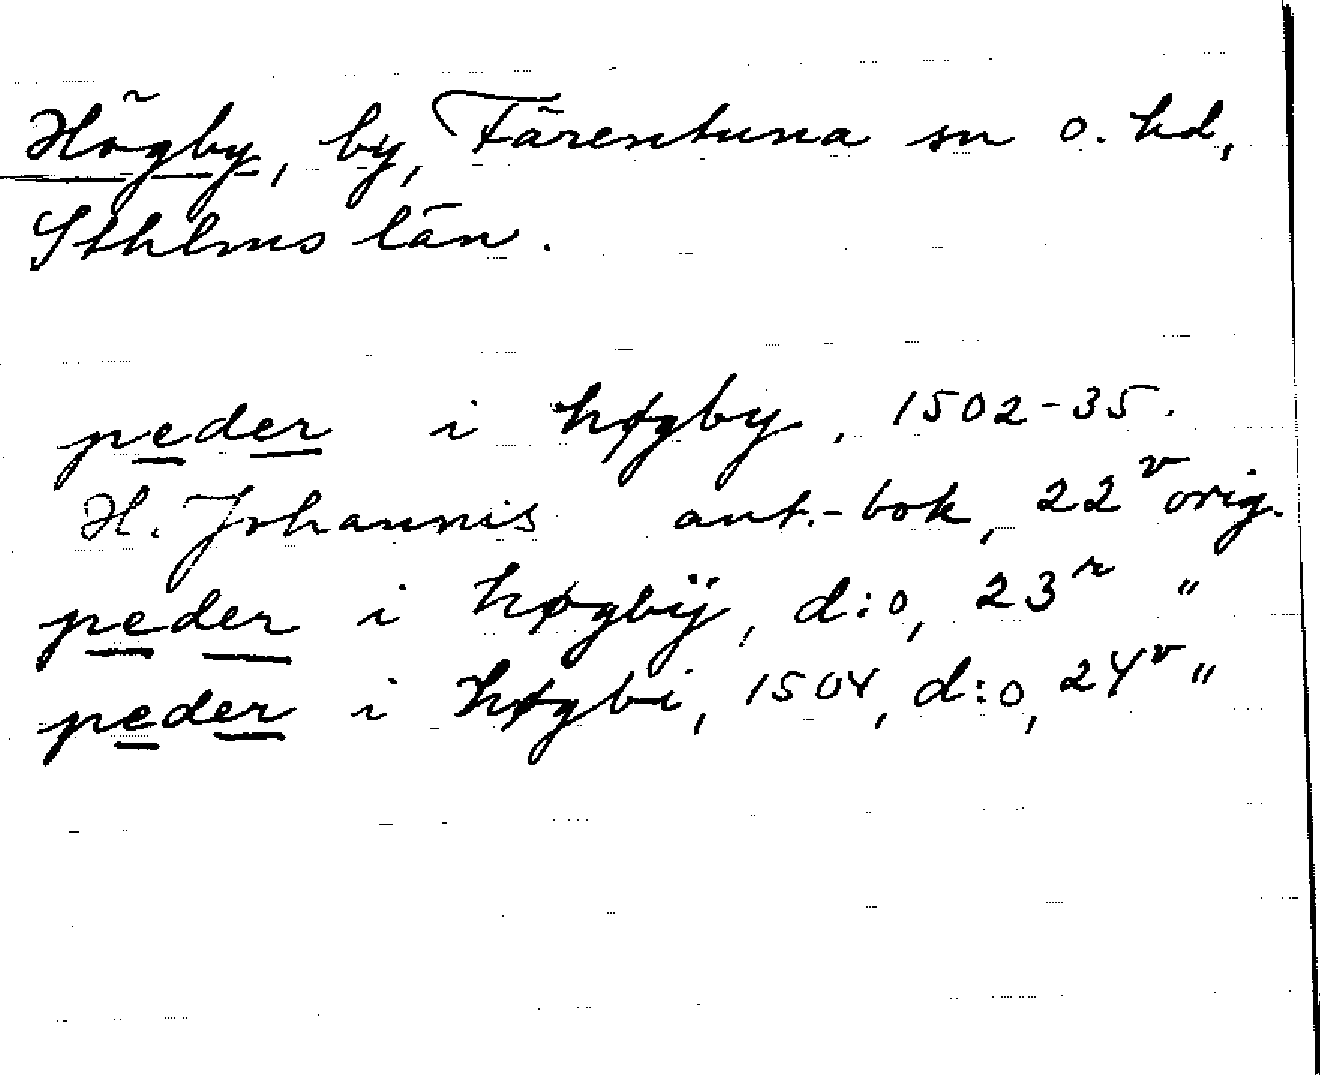 Högby, by, Färentuna sn o. hd,
Sthlms län.
peder i høgby, 1502-35.
H. Johannis ant.-bok, 22v orig.
peder i høgbÿ, d:o, 23r "
peder i høgbi, 1504, d:o, 24v "